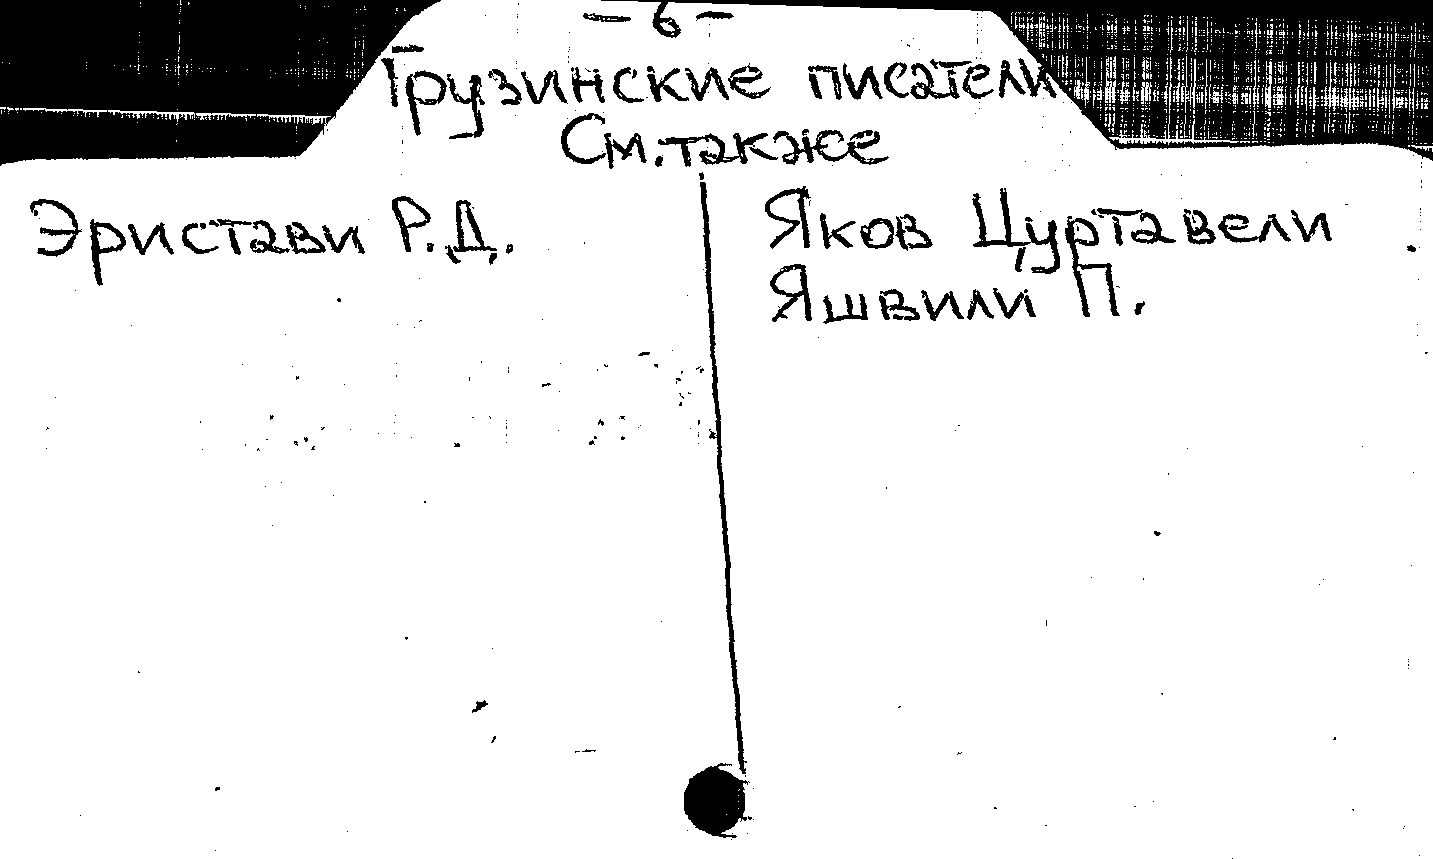 – 6 –
Грузинские писатели
См. также
Эристави Р.Д.
Яков Цуртавели
Яшвили П.